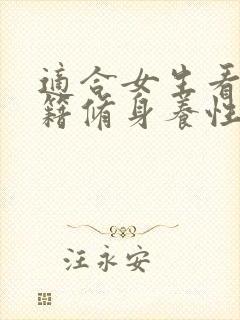 適合女生看
籍脩身養性
汪永安